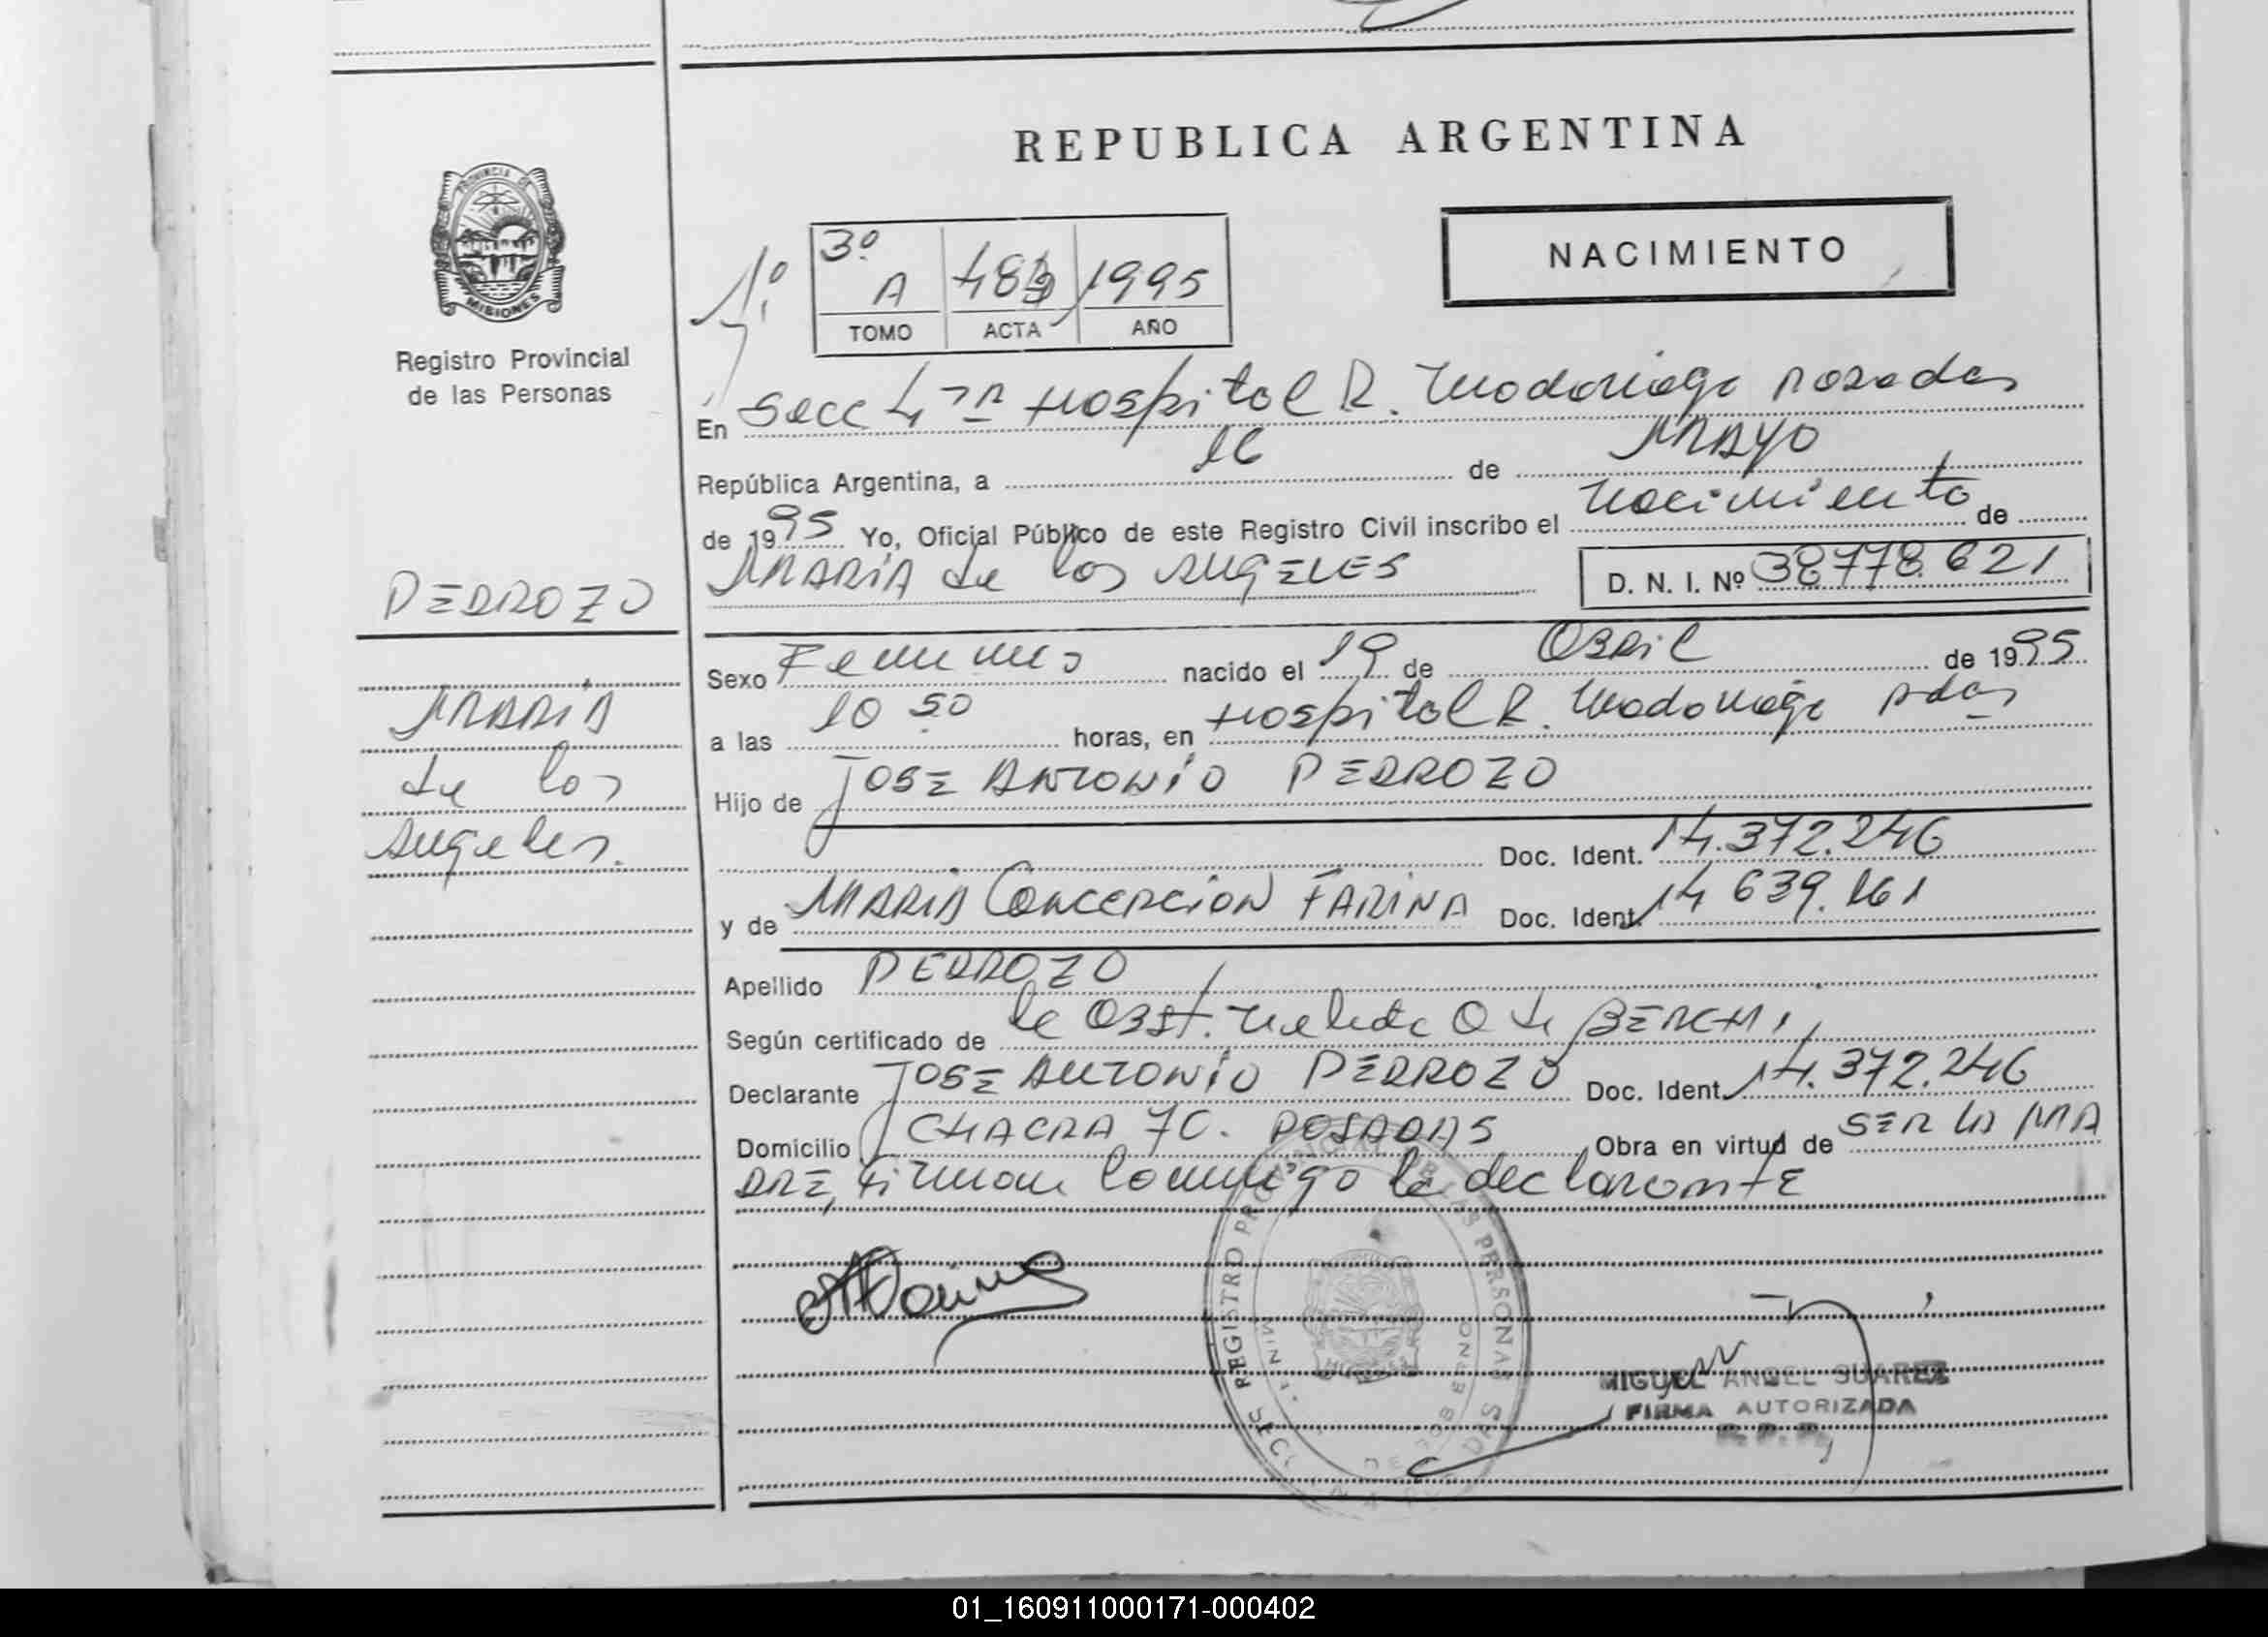 REPUBLICA ARGENTINA
PROVINCIA DE
MISIONES
Registro Provincial
de las Personas
NACIMIENTO
1º
3º
A 1995
TOMO ACTA AÑO
En Secc 4ta Hospital R. Madariaga Posadas
República Argentina, a 16 de MAYO
de 1995 Yo, Oficial Público de este Registro Civil inscribo el nacimiento de
MARIA de los ANGELES D. N. I. Nº 38778.621
PEDROZO
MARIA
de los
Angeles.
Sexo Femenino nacido el 19 de ABRIL de 1995
a las 10 50 horas, en Hospital R. Madariaga Pdas
Hijo de JOSE ANTONIO PEDROZO
Doc. Ident. 14.372.246
y de MARIA CONCEPCION FARINA Doc. Ident. 14 639.161
Apellido PEDROZO
Según certificado de la OBST. O de
Declarante JOSE ANTONIO PEDROZO Doc. Ident. 14.372.246
Domicilio CHACRA 70. POSADAS Obra en virtud de SER LA MA
DRE, Firman conmigo la declarante
REGISTRO PROVINCIAL DE LAS PERSONAS
MIGUEL ANGEL SUAREZ
FIRMA AUTORIZADA
R. P. P.
01_160911000171-000402